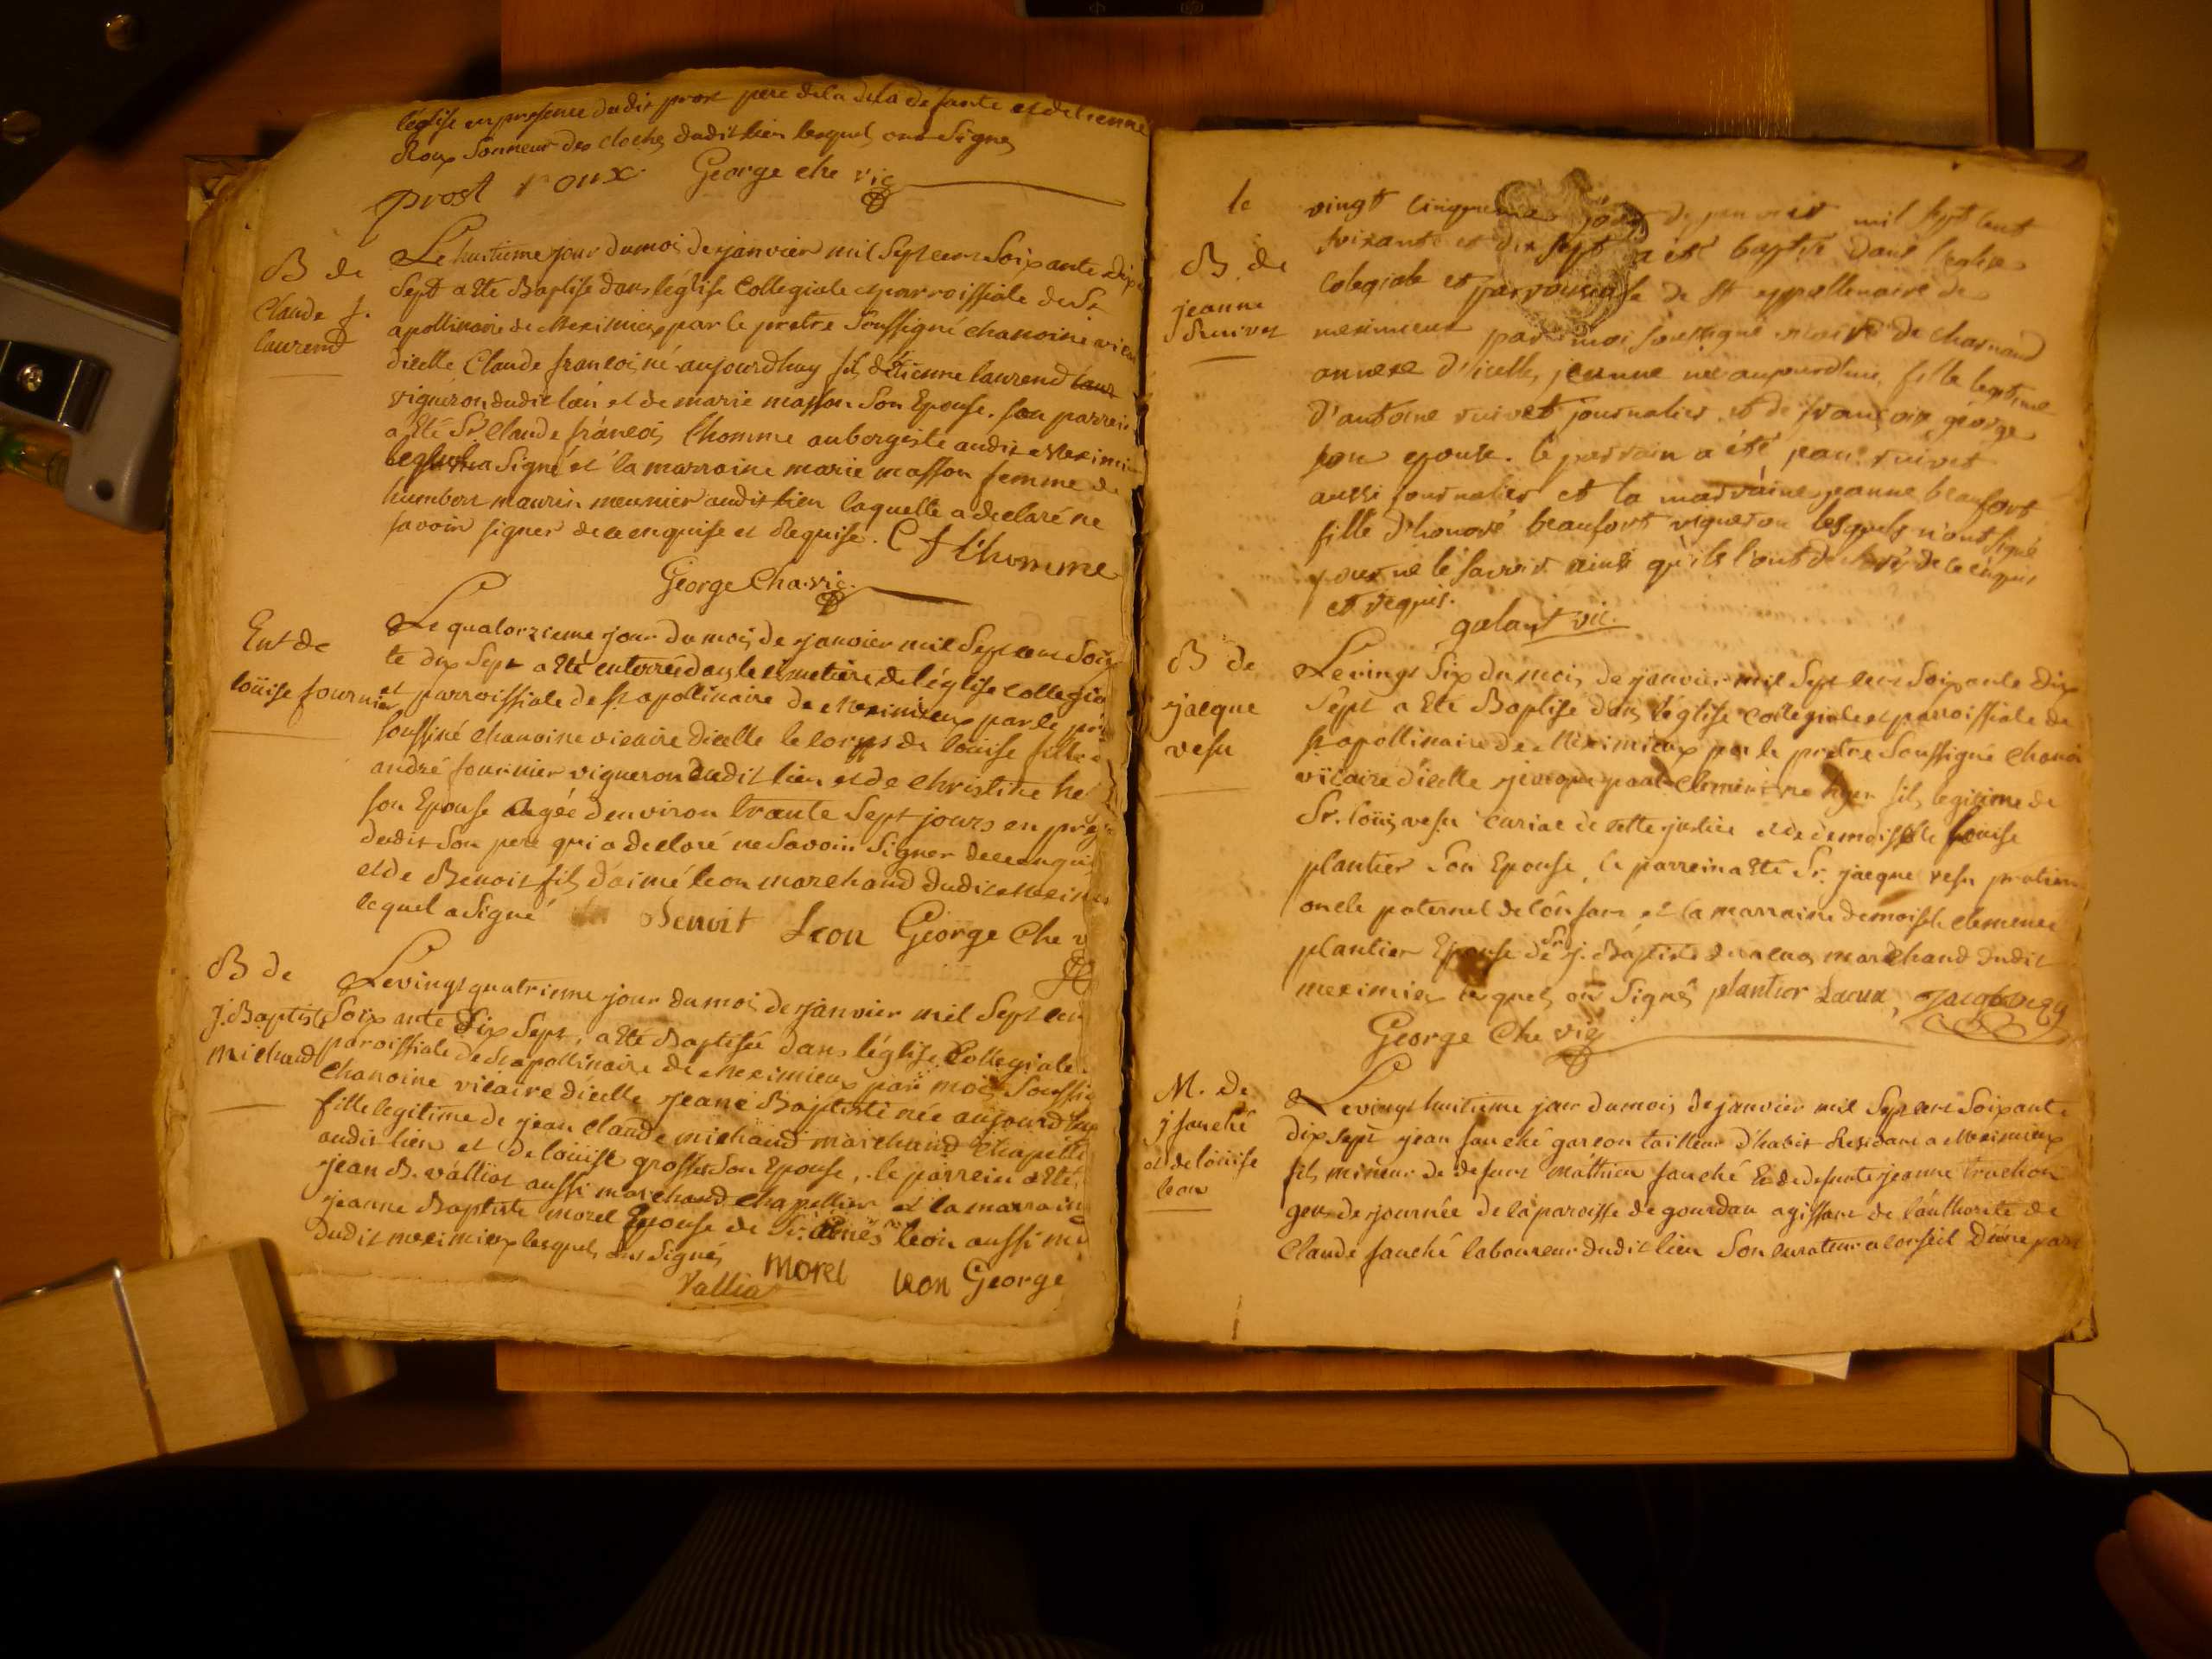 l'église en presence dudit prost pere de la de la defunte et detienne
Roux Sonneur des cloches dudit lieu lesquels ont Signes
prost roux George che vic
B de
Claude f.
laurend
Le huitieme jour du mois de janvier mil Sept cent Soixante dix
Sept a Eté Baptisé dans l'église Collegiale et parroissiale de St
apollinaire de Meximieux par le pretre Soussigné chanoine vicai
dicelle Claude francois né aujourdhuy fils détienne laurend
vigneron dudit lieu et de marie masson Son Epouse. son parrein
a Eté Sr. Claude francois lhomme aubergiste audit Meximi
lequel a Signé et la marraine marie masson femme de
humbert maurin meunier audit lieu laquelle a declaré ne
savoir signer de ce enquise et Requise. C f lhomme
George Cha. vic.
Ent de
loüise fournier
Le quatorzieme jour du mois de janvier mil Sept cens Soix
te dix Sept a Eté enterrée dans le cimetiere de l'église collegia
et parroissiale de St apollinaire de Meximieux par le pre
soussiné chanoine vicaire dicelle le corps de loüise fille
andré fournier vigneron dudit lieu et de Christine
son Epouse agée denviron trante Sept jours en pres
dudit Son pere qui a declaré ne Savoir Signer de ce enqui
et de Benoit fils d'aimé leon marchand dudit Meximi
lequel a Signé Benoit Leon George Che v
B de
J. Baptiste
michaud
Le vingt quatrieme jour du mois de janvier mil Sept cen
Soixante dix Sept, a Eté Baptisée dans l'église Collegiale
paroissiale de St apollinaire de Meximieux par moi Soussig
chanoine vicaire dicelle jeane Baptiste née aujourdhuy
fille legitime de jean claude michaud marchand Chapelle
audit lieu et de loüise grosset Son Epouse, le parrein a Eté
jean B. valliot aussi marchand chapellier et la marrain
jeanne Baptiste morel Epouse de Sr. leon aussi ma
dudit meximieux lesquels ont Signés
morel leon George
le vingt cinquieme jour de janvier mil sept cent
B de
jeanne
Ruivet
soixante et dix sept a été baptisé dans l'eglise
colegiale et parroissiale de St appollenaire de
meximieux par moi soussigné vicaire de charnaud
annexe d'icelle, jeanne née aujourdhui, fille legitime
d'antoine ruivet journalier et de françoise géorge
son epouse. le parrain a été jean ruivet
aussi journalier et la marraine jeanne beaufort
fille d'honoré beaufort vigneron lesquels n'ont signé
pour ne le savoir ainsi qu'ils l'ont declaré de ce enquis
et requis.
galant vic.
B de
jacque
vesu
Le vingt Six du mois de janvier mil Sept cens Soixante dix
Sept a Eté Baptisé dans l'église collegiale et parroissiale de
St apollinaire de Meximieux par le pretre Soussigné chanoi
vicaire dicelle jacque paul Clement né hyer fils legitime de
Sr. loüis vesu curial de cette justice et de demoiselle loüise
plantier Son Epouse, le parrein a Eté Sr. jacque vesu praticien
oncle paternel de lénfant et la marraine demoiselle clemence
plantier Epouse de Sr j. Baptiste marchand dudit
meximieux lesquels ont Signés plantier
George Che vic
M. de
j fauché
et de loüise
leon
Le vingt huitieme jour du mois de janvier mil Sept cens Soixante
dix Sept jean fauché garcon tailleur d'habit Residant a Meximieux
fils mineur de defunt mathieu fauché et de defunte jeanne truchon
gens de journée de la paroisse de gourdan agissant de lauthorité de
Claude fauché laboureur dudit lieu Son curateur a conseil d'une part